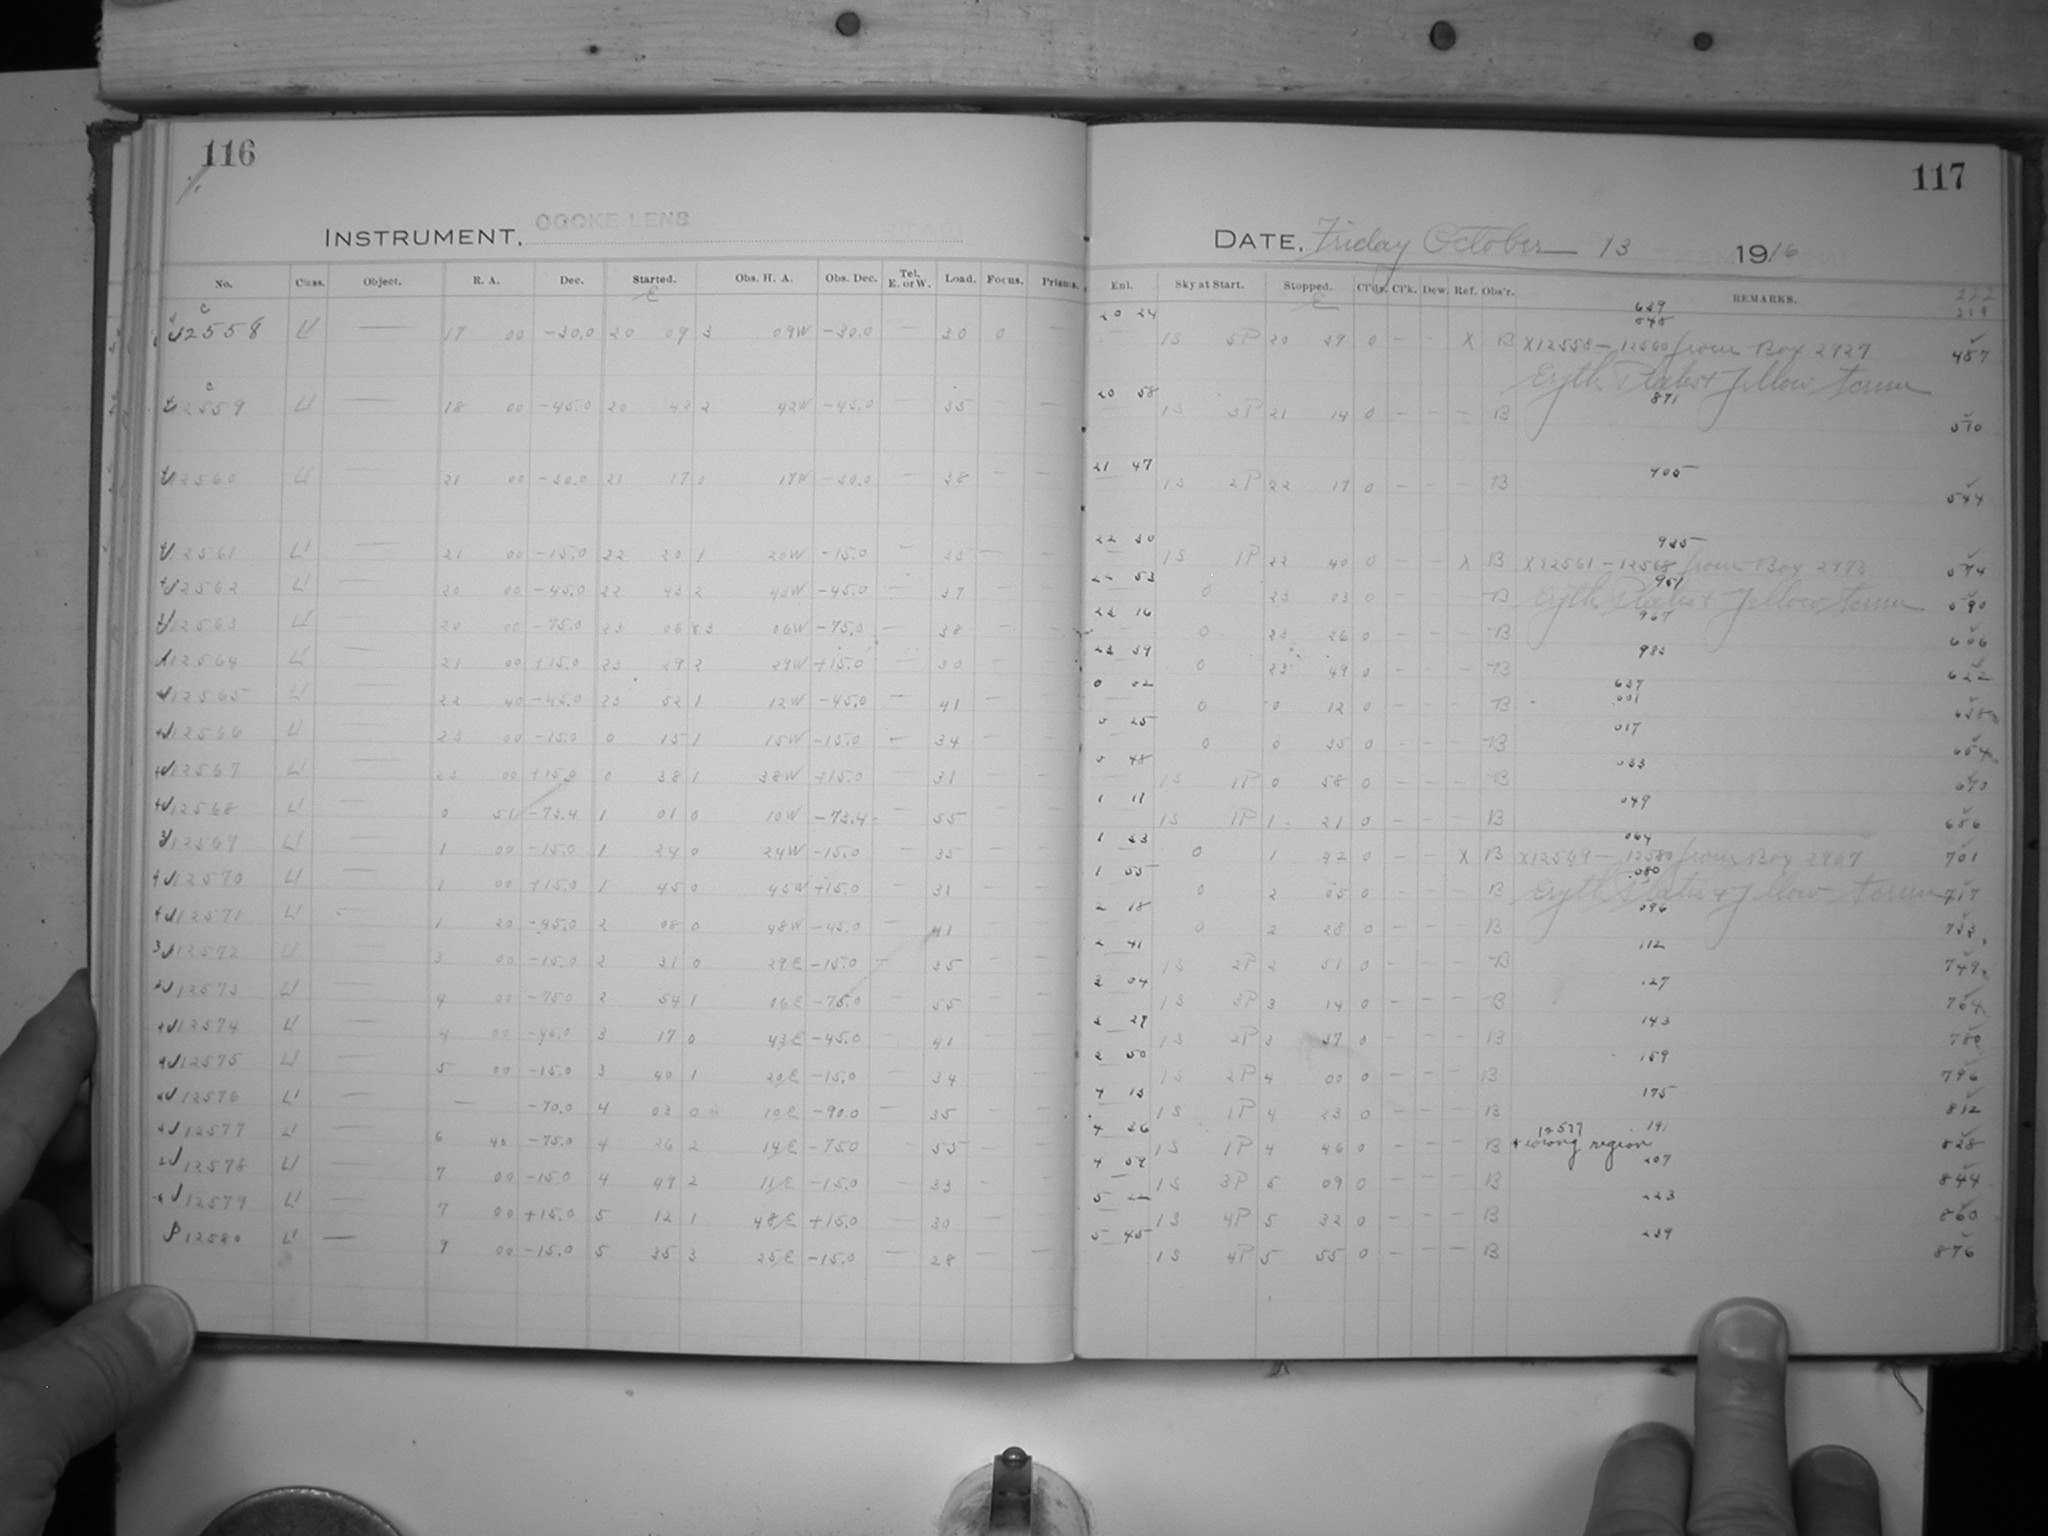 116
INSTRUMENT, COOKE LENS
No. Class. Object. R. A. Dec. Started. Obs. H. A. Obs. Dec. Tel. E. or W. Load. Focus. Prisms.
E
c
12558 — 17 00 -30.0 20 09 3 09W -30.0 — 30 0 —
c
12559 — 18 00 -45.0 20 42 2 42W -45.0 — 35 — —
12560 — 21 00 -30.0 21 17 0 17W -30.0 — 38 — —
12561 — 21 00 -15.0 22 20 1 20W -15.0 — 35 — —
12562 — 20 00 -45.0 22 43 2 43W -45.0 — 37 — —
12563 — 20 00 -75.0 23 06 3 06W -75.0 — 38 — —
12564 — 21 00 +15.0 23 29 2 29W +15.0 — 30 — —
12565 — 22 40 -45.0 23 52 1 12W -45.0 — 41 — —
12566 — 23 00 -15.0 0 15 1 15W -15.0 — 34 — —
12567 — 23 00 +15.0 0 38 1 38W +15.0 — 31 — —
12568 — 0 51 -73.4 1 01 0 10W -73.4 — 55 — —
12569 — 1 00 -15.0 1 24 0 24W -15.0 — 35 — —
12570 — 1 00 +15.0 1 45 0 45W +15.0 — 31 — —
12571 — 1 20 -45.0 2 08 0 48W -45.0 — 41 — —
12572 — 3 00 -15.0 2 31 0 29E -15.0 — 35 — —
12573 — 4 00 -75.0 2 54 1 06E -75.0 — 55 — —
12574 — 4 00 3 17 0 43E -45.0 — 41 — —
12575 — 5 00 -15.0 3 40 1 20E -15.0 — 34 — —
12576 — — 4 03 0 10E -90.0 — 35 — —
12577 — 6 40 -75.0 4 26 2 14E -75.0 — 55 — —
12578 — 7 00 -15.0 4 49 2 11E -15.0 — 33 — —
12579 — 7 00 +15.0 5 12 1 48E +15.0 — 30 — —
12580 — 9 00 -15.0 5 35 3 25E -15.0 — 28 — —
117
DATE, Friday October 13 1916
Enl. Sky at Start. Stopped. Cl'ds. Cl'k. Dew. Ref. Obs'r. REMARKS.
E
20 24 1S 5P 20 39 0 — — X B X12558 - 12560 from Box 2927 457
Eryth Plates & Yellow screen
20 58 1S 3P 21 14 0 — — — B 871 510
21 47 1S 2P 22 17 0 — — — B 905 544
22 30 1S 1P 22 40 0 — — X B X12561 - 12568 from Box 2973 935 574
22 53 0 23 03 0 — — — B Eryth Plates & Yellow screen 951 590
23 16 0 23 26 0 — — — B 967 606
23 39 0 23 49 0 — — — B 983 622
0 02 0 0 12 0 — — — B 637 001 638
0 25 0 0 35 0 — — — B 017 654
0 48 1S 1P 0 58 0 — — — B 033 670
1 11 1S 1P 1 21 0 — — — B 049 686
1 33 0 1 42 0 — — X B X12569 - 12580 from Box 2967 064 701
1 55 0 2 05 0 — — — B Eryth Plates & Yellow screen 080 717
2 18 0 2 28 0 — — — B 096 733
2 41 1S 2P 2 51 0 — — — B 112 749
3 04 1S 3P 3 14 0 — — — B 127 764
3 27 1S 2P 3 37 0 — — — B 143 780
3 50 1S 2P 4 00 0 — — — B 159 796
4 13 1S 1P 4 23 0 — — — B 175 812
4 36 1S 1P 4 46 0 — — — B 12577 wrong region 191 828
4 59 1S 3P 5 09 0 — — — B 207 844
5 22 1S 4P 5 32 0 — — — B 223 860
5 45 1S 4P 5 55 0 — — — B 239 876